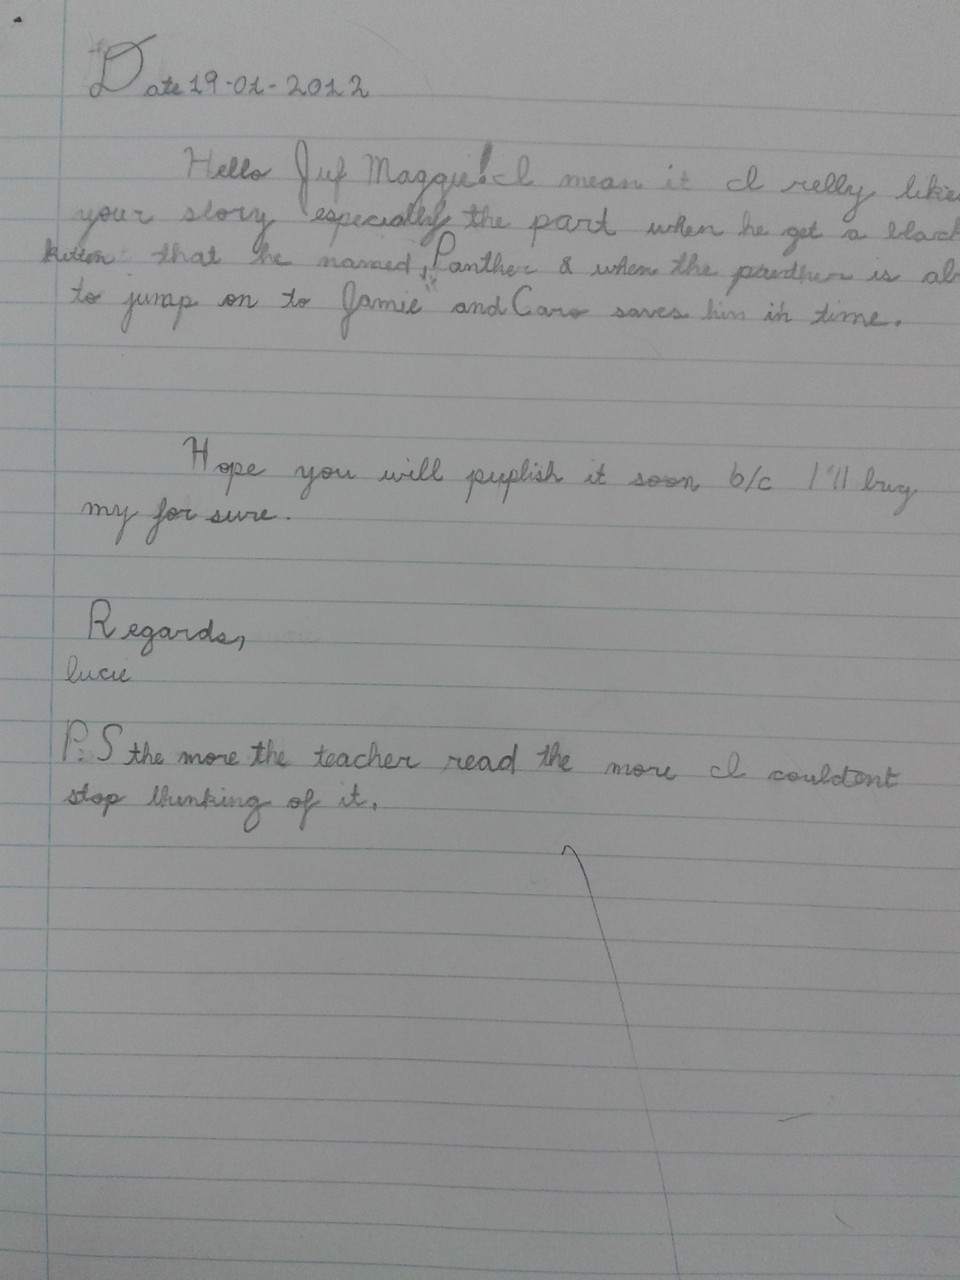 Date 19-01-2012
Hello Juf Maggie! I mean it I relly like
your story especially the part when he get a black
kitten that he named „Panther" & when the panther is
to jump on to Jamie and Caro saves him in time.
Hope you will puplish it soon b/c I'll buy
my for sure.
Regards,
lucie
P.S the more the teacher read the more I couldent
stop thinking of it.